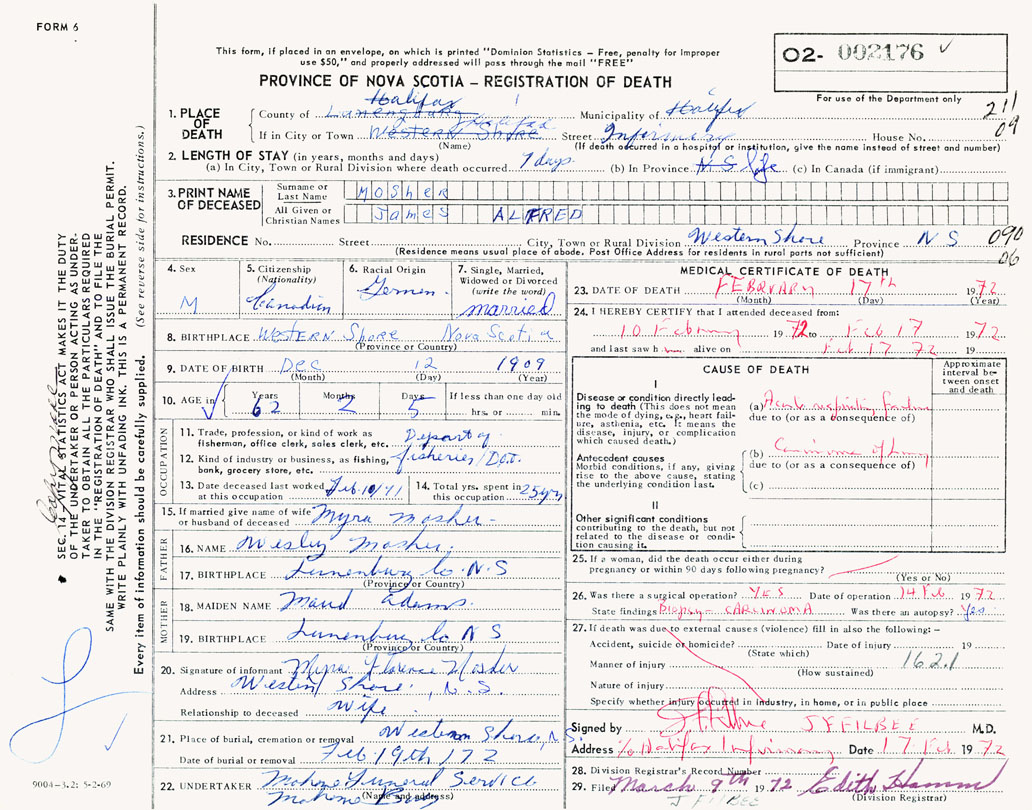 FORM 6
O2- 002176 ✓
For use of the Department only
This form, if placed in an envelope, on which is printed "Dominion Statistics – Free, penalty for improper
use $50," and properly addressed will pass through the mail "FREE"
PROVINCE OF NOVA SCOTIA – REGISTRATION OF DEATH
211
09
1. PLACE OF DEATH
Halifax
County of Lunenburg Municipality of Halifax
If in City or Town Western Shore Halifax Street Infirmary House No.
(Name) (If death occurred in a hospital or institution, give the name instead of street and number)
2. LENGTH OF STAY (in years, months and days)
(a) In City, Town or Rural Division where death occurred 7 days (b) In Province N S life (c) In Canada (if immigrant)
3. PRINT NAME OF DECEASED
Surname or Last Name MOSHER
All Given or Christian Names James ALFRED
RESIDENCE No. Street City, Town or Rural Division Western Shore Province N S
(Residence means usual place of abode. Post Office Address for residents in rural parts not sufficient)
090
06
4. Sex M
5. Citizenship (Nationality) Canadian
6. Racial Origin German
7. Single, Married, Widowed or Divorced (write the word) married
8. BIRTHPLACE Western Shore Nova Scotia
(Province or Country)
9. DATE OF BIRTH Dec 12 1909
(Month) (Day) (Year)
10. AGE in Years 62 Months 2 Days 5 If less than one day old hrs. or min.
OCCUPATION
11. Trade, profession, or kind of work as fisherman, office clerk, sales clerk, etc. Depart of
12. Kind of industry or business, as fishing, bank, grocery store, etc. fisheries/
13. Date deceased last worked at this occupation Feb. 10/71
14. Total yrs. spent in this occupation 25 yrs
15. If married give name of wife or husband of deceased Myra Mosher
FATHER
16. NAME Wesley Mosher
17. BIRTHPLACE Lunenburg Co. N.S
(Province or Country)
MOTHER
18. MAIDEN NAME Maud Adams
19. BIRTHPLACE Lunenburg Co N S
(Province or Country)
20. Signature of informant Myra Florence Mosher
Address Western Shore, N.S.
Relationship to deceased Wife
21. Place of burial, cremation or removal Western Shore, N.S.
Date of burial or removal Feb. 19th 1972
22. UNDERTAKER Mahone Funeral Service
Mahone
(Name and address)
MEDICAL CERTIFICATE OF DEATH
23. DATE OF DEATH FEBRUARY 17th 1972
(Month) (Day) (Year)
24. I HEREBY CERTIFY that I attended deceased from:
10 February 1972 to Feb 17 1972
and last saw h alive on Feb 17 72 19
CAUSE OF DEATH
Approximate interval between onset and death
I
Disease or condition directly leading to death (This does not mean the mode of dying, e.g., heart failure, asthenia, etc. It means the disease, injury, or complication which caused death.)
(a) Acute respiratory failure
due to (or as a consequence of)
Antecedent causes
Morbid conditions, if any, giving rise to the above cause, stating the underlying condition last.
(b) Carcinoma of lung
due to (or as a consequence of)
(c)
II
Other significant conditions contributing to the death, but not related to the disease or condition causing it.
25. If a woman, did the death occur either during pregnancy or within 90 days following pregnancy?
(Yes or No)
26. Was there a surgical operation? YES Date of operation 14 Feb 1972
State findings Biopsy – CARCINOMA Was there an autopsy? Yes
27. If death was due to external causes (violence) fill in also the following: –
Accident, suicide or homicide? Date of injury 19
(State which)
Manner of injury 162.1
(How sustained)
Nature of injury
Specify whether injury occurred in industry, in home, or in public place
Signed by J F Filbee J F FILBEE M.D.
Address c/o Halifax Infirmary Date 17 Feb 1972
28. Division Registrar's Record Number
29. Filed March 9th 1972 Edith Hamm
(Division Registrar)
J FILBEE
SEC. 14, VITAL STATISTICS ACT MAKES IT THE DUTY
OF THE UNDERTAKER OR PERSON ACTING AS UNDER-
TAKER TO OBTAIN ALL THE PARTICULARS REQUIRED
IN THE "REGISTRATION OF DEATH" AND TO FILE THE
SAME WITH THE DIVISION REGISTRAR WHO SHALL ISSUE THE BURIAL PERMIT.
WRITE PLAINLY WITH UNFADING INK. THIS IS A PERMANENT RECORD.
Every item of information should be carefully supplied. (See reverse side for instructions.)
9004-3.2: 5-2-69